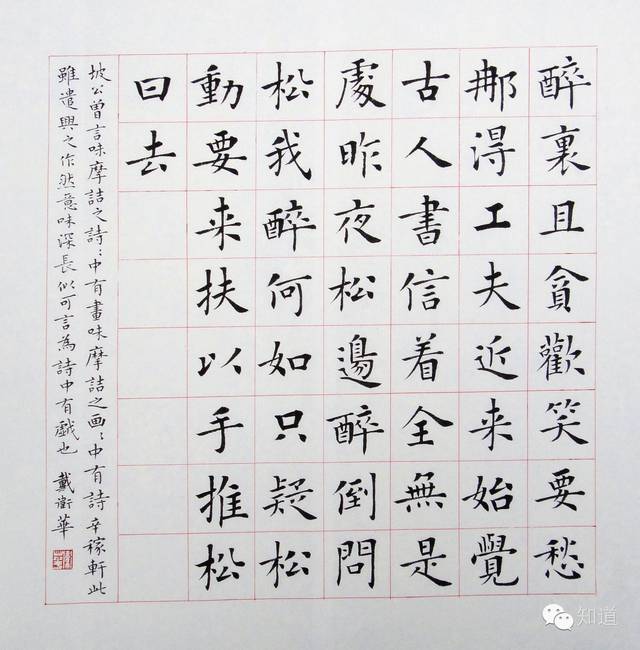 醉裏且貪歡笑要愁
那得工夫近来始覺
古人書信着全無是
處昨夜松邊醉倒問
松我醉何如只疑松
動要来扶以手推松
曰去
坡公曾言味摩詰之詩〻中有畫味摩詰之画〻中有詩辛稼軒此
雖遣興之作然意味深長似可言為詩中有戲也 戴衛華
知道